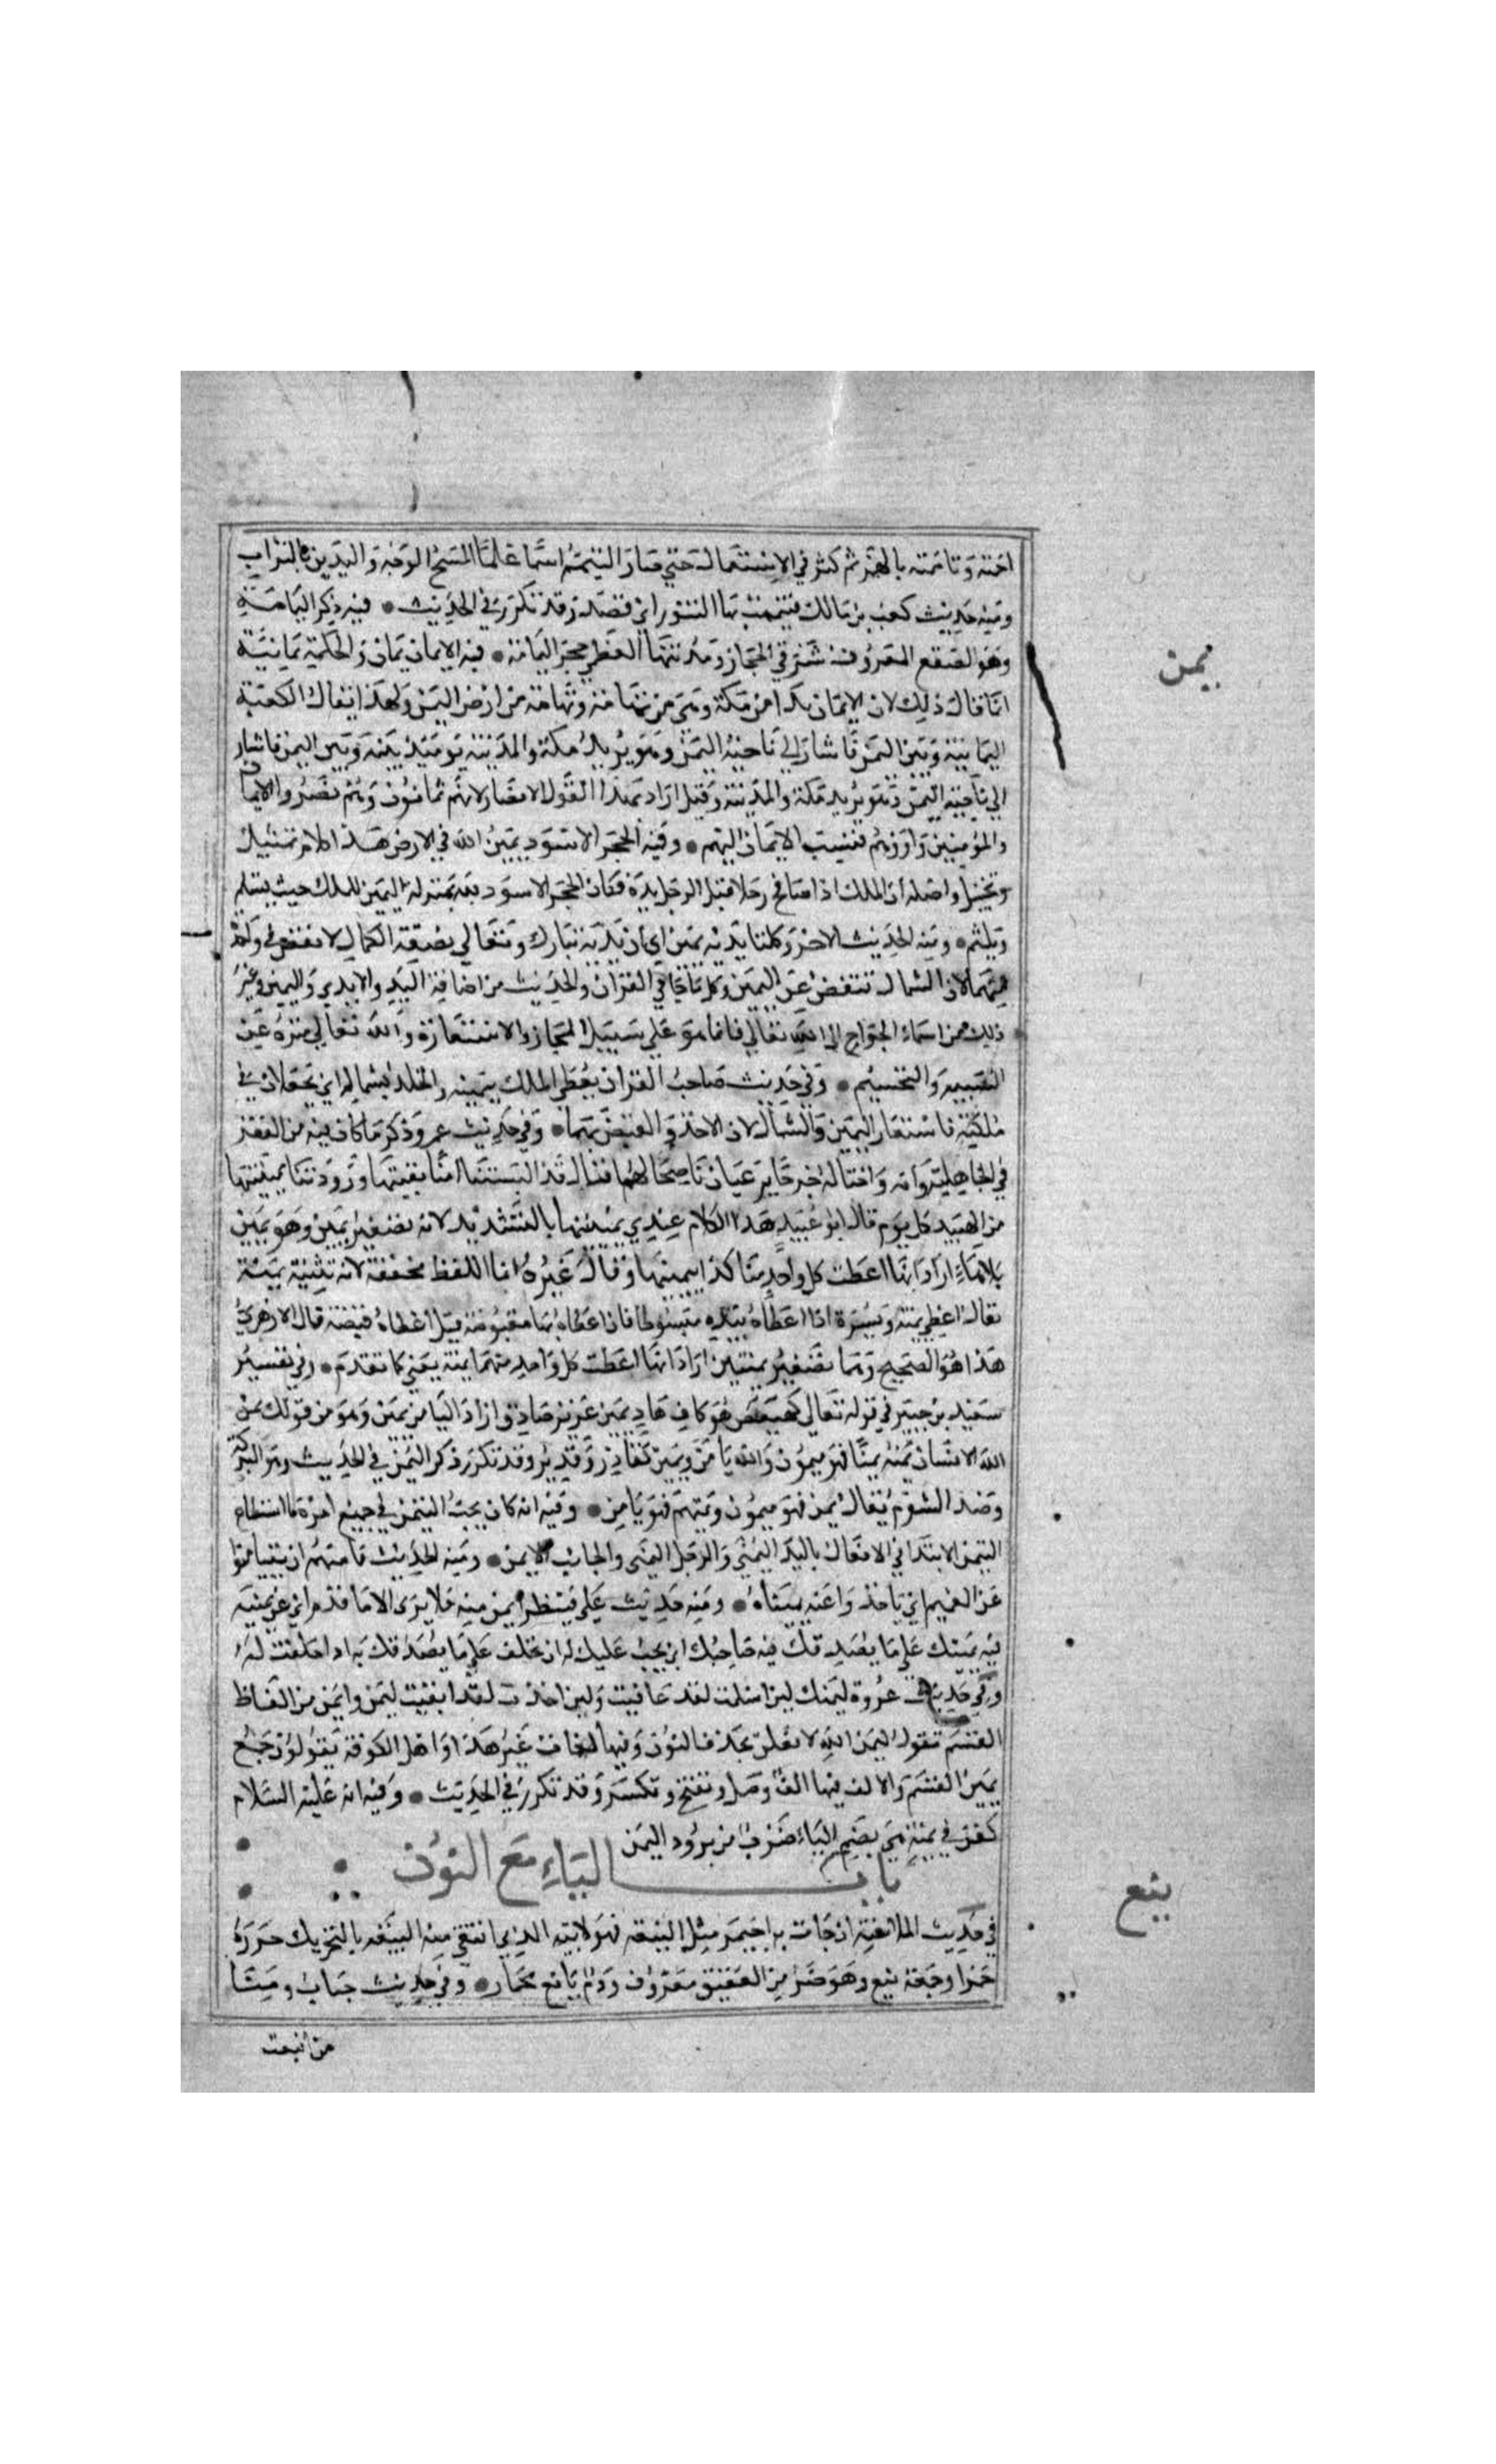 اممته وتأممته بالهمز ثم كثر في الاستعمال حتى صار التيمم اسما علما لمسح الوجه واليدين بالتراب
ومنه حديث كعب بن مالك فتيممت بها التنور اي قصدت وقد تكرر في الحديث • فيه ذكر اليمامة
وهو الصقع المعروف شرقي الحجاز ومدينتها العظمى حجر اليمامة • فيه الايمان يمان والحكمة يمانية
يمن
انما قال ذلك لان الايمان بدا من مكة وهي من تهامة وتهامة من ارض اليمن ولهذا يقال الكعبة
اليمانية وبين اليمن فاشار الى ناحية اليمن وهو يريد مكة والمدينة يومئذ بينه وبين اليمن فاشار
الى ناحية اليمن وهو يريد مكة والمدينة وقيل اراد بهذا القول الانصار لانهم يمانون وهم نصروا الايمان
والمؤمنين واووهم فنسب الايمان اليهم • وفيه الحجر الاسود يمين الله في الارض هذا كلام تمثيل
وتخييل واصله ان الملك اذا صافح رجلا قبل الرجل يده فكان الحجر الاسود لله بمنزلة اليمين للملك حيث يستلم
ويلثم • ومنه الحديث الاخر وكلتا يديه يمين اي ان يديه تبارك وتعالى بصفة الكمال لا نقص في واحدة
منهما لان الشمال تنقص عن اليمين وكل ما جا في القران والحديث من اضافة اليد والايدي واليمين وغير
ذلك من اسماء الجوارح الى الله تعالى فانما هو على سبيل المجاز والاستعارة والله تعالى منزه عن
التشبيه والتجسيم • وفي حديث صاحب القران يعطى الملك بيمينه والخلد بشماله اي يجعلان في
ملكيه فاستعار اليمين والشمال لان الاخذ والقبض بهما • وفي حديث عمر وذكر ما كان فيه من الفقر
في الجاهلية وانه واختا له خرجا يرعيان ناضحا لهما فقال قد البستنا امنا نقبتها وزودتنا يمينتيها
من الهبيد كل يوم قال ابو عبيد هذا الكلام عندي يمينيها بالتشديد لانه تصغير يمين وهو يمين
بلا هاء اراد انها اعطت كل واحد منا كفا بيمينها وقال غيره انما اللفظ مخففة لانه تثنية يمنة
يقال اعطى يمنة ويسرة اذا اعطاه بيده مبسوطة فاذا اعطاه بها مقبوضة قيل اعطاه قبضة قال الازهري
هذا هو الصحيح وهما تصغير يمنتين اراد انها اعطت كل واحد منهما يمنة يعني كما تقدم • وفي تفسير
سعيد بن جبير في قوله تعالى كهيعص هو كاف هاد يمين عزيز صادق اراد اليا من يمين وهو من قولك يمن
الله الانسان يمنه يمنا فهو ميمون والله يامن ويمين كقادر وقدير وقد تكرر ذكر اليمن في الحديث وهو البركة
وضد الشوم يقال يمن فهو ميمون ويمنهم فهو يامن • وفيه انه كان يحب التيمن في جميع امره ما استطاع
التيمن الابتدا في الافعال باليد اليمنى والرجل اليمنى والجانب الايمن • ومنه الحديث فامرهم ان يتيامنوا
عن الغميم اي ياخذوا عنه يمينا • ومنه حديث علي فينظر ايمن منه فلا يرى الا ما قدم اي عن يمينه
فيه يمينك على ما يصدقك فيه صاحبك اي يجب عليك له ان تحلف على ما يصدقك به اذا حلفت له
وفي حديث عروة ليمنك لئن ابتليت لقد عافيت ولين اخذت لقد ابقيت ليمن وايمن من الفاظ
القسم تقول ليمن الله لافعلن بحذف النون وفيها لغات غير هذا واهل الكوفة يقولون جمع
يمين القسم والالف فيها الف وصل وتفتح وتكسر وقد تكرر في الحديث • وفيه انه عليه السلام
كفن في يمنة هي بضم الياء ضرب من برود اليمن
باب الياء مع النون
ينع
في حديث الملاعنة ان جات به احيمر مثل الينعة فهو لابيه الذي انتفى منه الينعة بالتحريك خرزة
حمرا وجمعه ينع وهو ضرب من العقيق معروف ودم يانع محمار • وفي حديث خباب ومنا
من اينعت